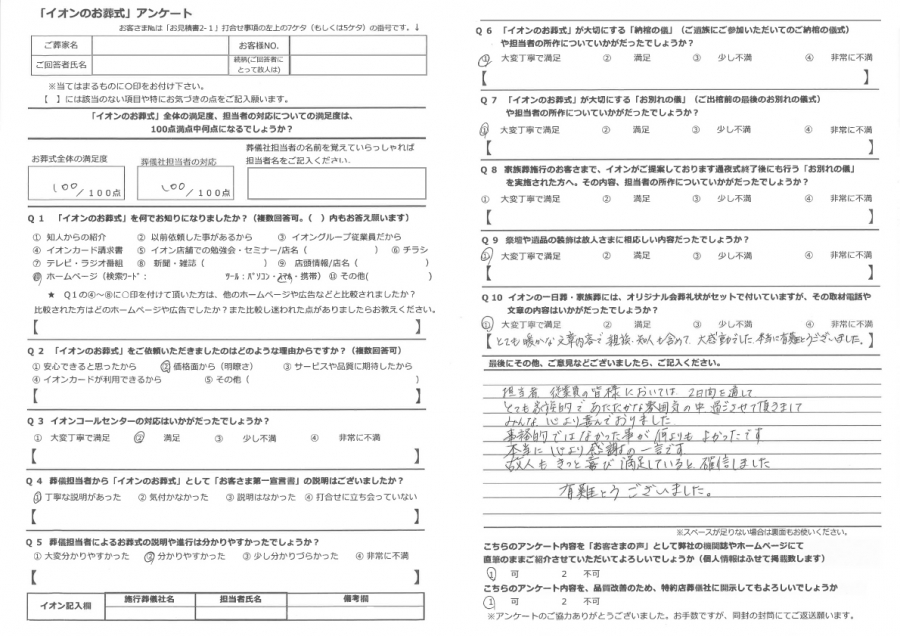 「イオンのお葬式」アンケート
お客さま№は「お見積書2-1」打合せ事項の左上の7ケタ（もしくは5ケタ）の番号です。↓
ご葬家名
お客様NO.
ご回答者氏名
続柄(ご回答者にとって故人は)
※当てはまるものに○印をお付け下さい。
【　】には該当のない項目や特にお気づきの点をご記入願います。
「イオンのお葬式」全体の満足度、担当者の対応についての満足度は、
100点満点中何点になるでしょうか？
お葬式全体の満足度
葬儀社担当者の対応
葬儀社担当者の名前を覚えていらっしゃれば
担当者名をご記入ください.
100/100点
100/100点
Q 1　「イオンのお葬式」を何でお知りになりましたか？（複数回答可。（　）内もお答え願います）
① 知人からの紹介　② 以前依頼した事があるから　③ イオングループ従業員だから
④ イオンカード請求書　⑤ イオン店舗での勉強会・セミナー/店名（　）　⑥ チラシ
⑦ テレビ・ラジオ番組　⑧ 新聞・雑誌（　）　⑨ 店頭情報/店名（　）
⑩ ホームページ（検索ﾜｰﾄﾞ：　ﾂｰﾙ：ﾊﾟｿｺﾝ・ｽﾏﾎ・携帯）⑪ その他(　)
★ Q１の④～⑧に○印を付けて頂いた方は、他のホームページや広告などと比較されましたか？
比較された方はどのホームページや広告でしたか？また比較し迷われた点がありましたらお教えください。
【　】
Q 2　「イオンのお葬式」をご依頼いただきましたのはどのような理由からですか？（複数回答可）
① 安心できると思ったから　② 価格面から（明瞭さ）　③ サービスや品質に期待したから
④ イオンカードが利用できるから　⑤ その他（　）
【　】
Q 3　イオンコールセンターの対応はいかがだったでしょうか？
①　大変丁寧で満足　②　満足　③　少し不満　④　非常に不満
【　】
Q 4　葬儀担当者から「イオンのお葬式」として「お客さま第一宣言書」の説明はございましたか？
① 丁寧な説明があった　② 気付かなかった　③ 説明はなかった　④ 打合せに立ち会っていない
【　】
Q 5　葬儀担当者によるお葬式の説明や進行は分かりやすかったでしょうか？
① 大変分かりやすかった　② 分かりやすかった　③ 少し分かりづらかった　④ 非常に不満
【　】
イオン記入欄
施行葬儀社名
担当者氏名
備考欄
Q 6　「イオンのお葬式」が大切にする「納棺の儀」（ご遺族にご参加いただいてのご納棺の儀式）
や担当者の所作についていかがだったでしょうか？
①　大変丁寧で満足　②　満足　③　少し不満　④　非常に不満
【　】
Q 7　「イオンのお葬式」が大切にする「お別れの儀」（ご出棺前の最後のお別れの儀式）
や担当者の所作についていかがだったでしょうか？
①　大変丁寧で満足　②　満足　③　少し不満　④　非常に不満
【　】
Q 8　家族葬施行のお客さまで、イオンがご提案しております通夜式終了後にも行う「お別れの儀」
を実施された方へ。その内容、担当者の所作についていかがだったでしょうか？
①　大変丁寧で満足　②　満足　③　少し不満　④　非常に不満
【　】
Q 9　祭壇や遺品の装飾は故人さまに相応しい内容だったでしょうか？
①　大変丁寧で満足　②　満足　③　少し不満　④　非常に不満
【　】
Q 10　イオンの一日葬・家族葬には、オリジナル会葬礼状がセットで付いていますが、その取材電話や
文章の内容はいかがだったでしょうか？
①　大変丁寧で満足　②　満足　③　少し不満　④　非常に不満
【とても暖かな文章内容で親族・知人も含めて、大感動でした。本当に有難とうございました。】
最後にその他、ご意見などございましたら、ご記入ください。
担当者、従業員の皆様においては 2日間を通して
とても家族的であたたかな雰囲気の中過ごさせて頂きまして
みんな心より喜んでおりました
事務的ではなかった事が何よりもよかったです
本当に心より感謝の一言です
故人もきっと喜び満足していると確信しました
有難とうございました。
※スペースが足りない場合は裏面もお使いください。
こちらのアンケート内容を「お客さまの声」として弊社の機関誌やホームページにて
直筆のままご紹介させていただいてよろしいでしょうか（個人情報はふせて掲載致します）
1　可　2　不可
こちらのアンケート内容を、品質改善のため、特約店葬儀社に開示してもよろしいでしょうか
1　可　2　不可
※アンケートのご協力ありがとうございました。お手数ですが、同封の封筒にてご返送願います。